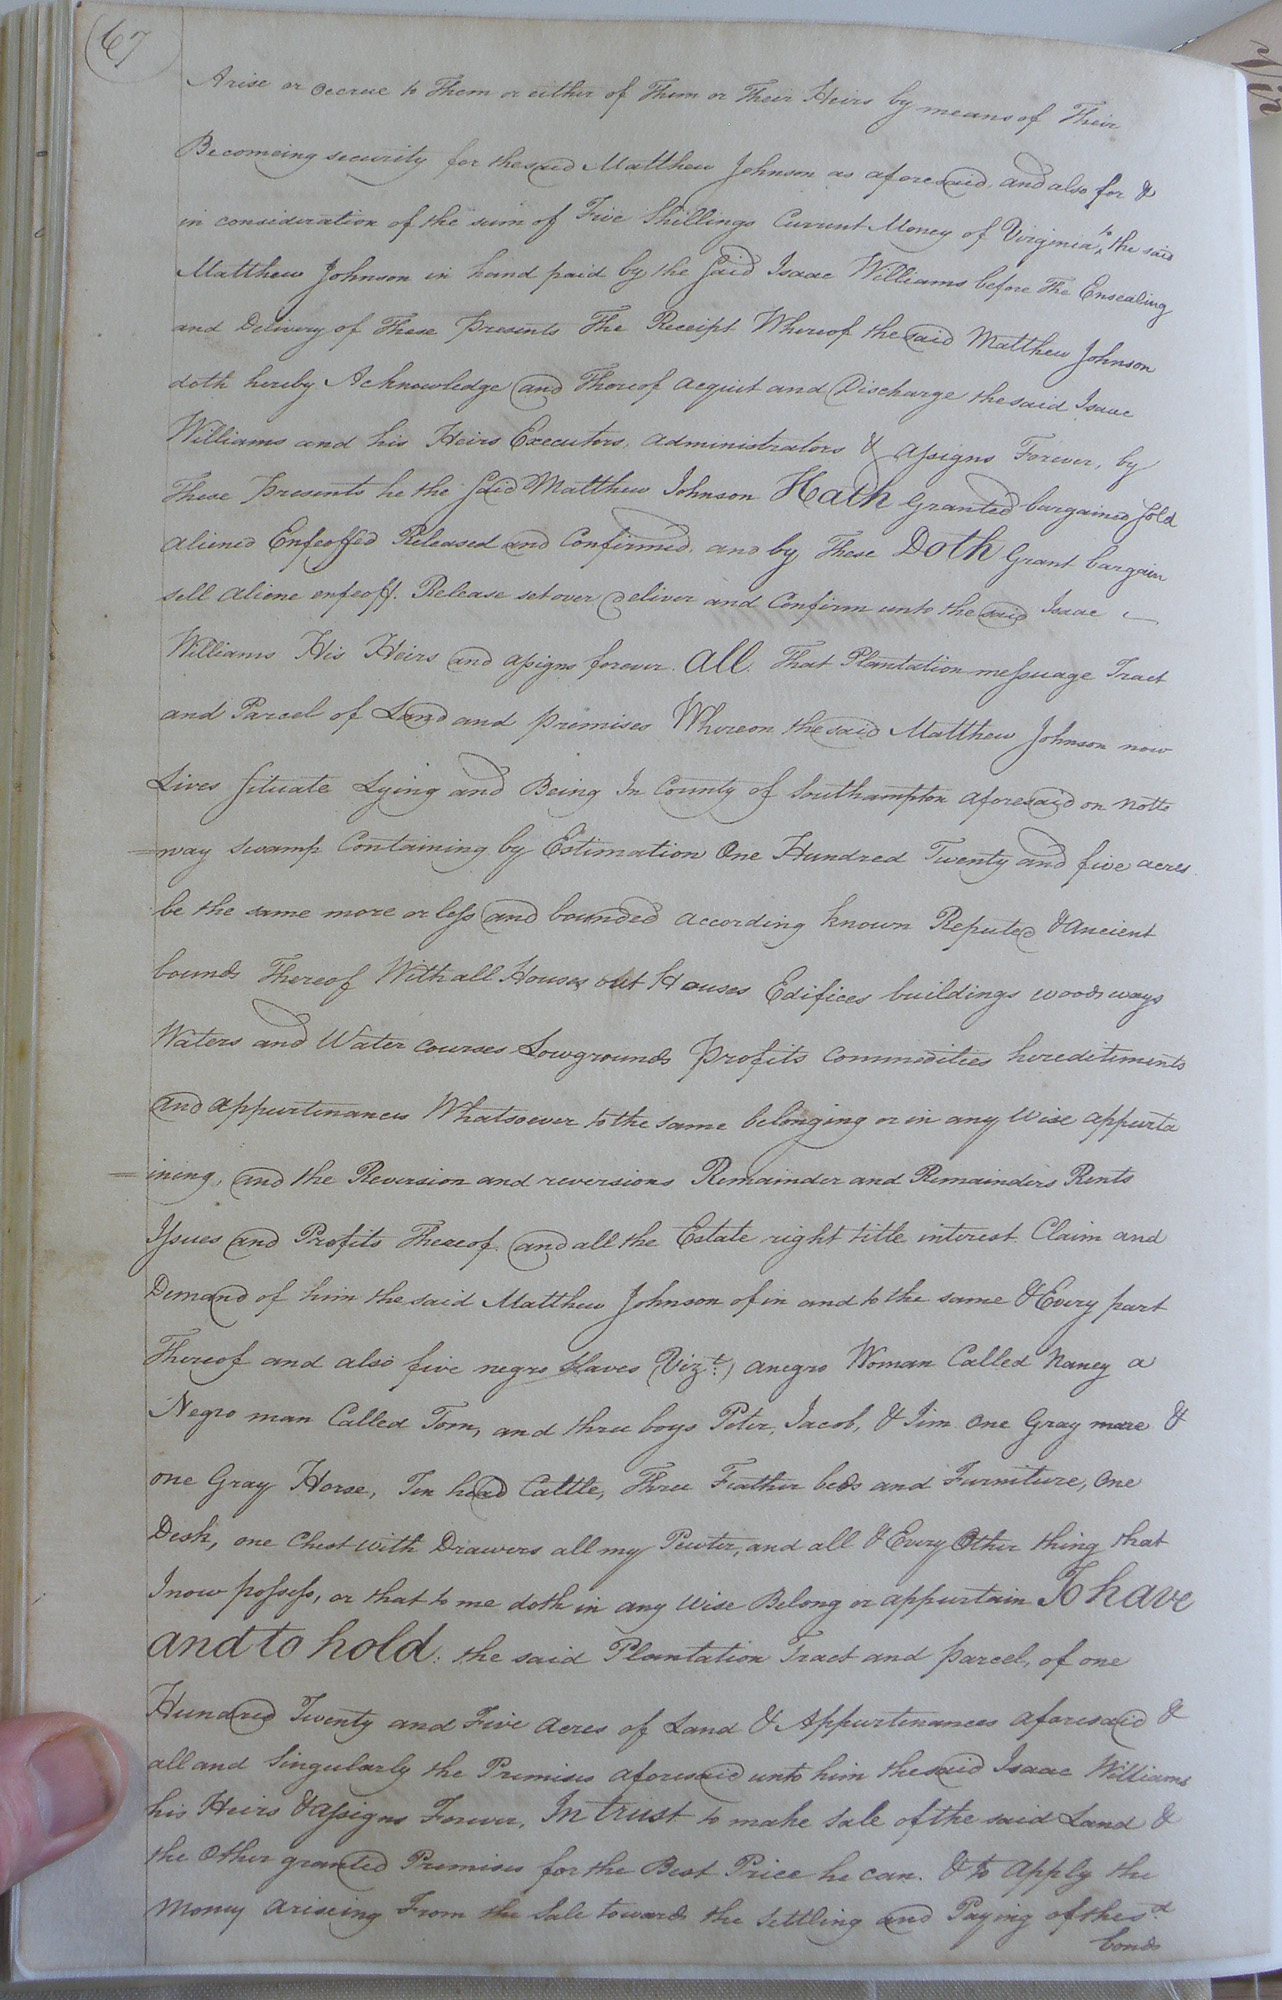 67
Arise or accrue to Them or either of Them or Their Heirs by means of Their
Becomeing security for the said Matthew Johnson as aforesaid and also for &
in consideration of the sum of Five Shillings Current Money of Virginia to the said
Matthew Johnson in hand paid by the Said Isaac Williams before The Ensealing
and Delivery of These Presents The Receipt Whereof the said Matthew Johnson
doth hereby Acknowledge and Thereof acquit and Discharge the said Isaac
Williams and his Heirs Executors, administrators & assigns Forever, by
These Presents he the Said Matthew Johnson Hath Granted bargained Sold
aliened Enfeoffed Released and Confirmed, and by These Doth Grant bargain
sell aliene enfeoff. Release set over deliver and Confirm unto the said Isaac
Williams His Heirs and assigns forever. All. That Plantation messuage Tract
and Parcel of Land and premises Whereon the said Matthew Johnson now
Lives Situate Lying and Being In County of Southampton aforesaid on Notte
=way swamp Containing by Estimation One Hundred Twenty and five acres
be the same more or less and bounded according known Reputed & Ancient
bounds Thereof With all Houses out Houses Edifices buildings woods ways
Waters and Water courses Lowgrounds Profits Commodities hereditiments
and appurtinances Whatsoever to the same belonging or in any wise appurta
=ining, and the Reversion and reversions Remainder and Remainders Rents
Issues and Profits Thereof. and all the Estate right title interest Claim and
Demand of him the said Matthew Johnson of in and to the same & Every part
Thereof and also five negro Slaves (Vizt.) a negro Woman Called Nancy a
Negro man Called Tom, and three boys Peter, Jacob, & Jim one Gray mare &
one Gray Horse, Ten head Cattle, Three Feather beds and Furniture, One
Desk, one Chest with Drawers all my Pewter, and all & Every Other thing that
I now possess, or that to me doth in any wise Belong or appurtain To have
and to hold: the said Plantation Tract and parcel, of one
Hundred Twenty and Five acres of Land & Appurtenances aforesaid &
all and Singularly the Premises aforesaid unto him the said Isaac Williams
his Heirs & assigns Forever, In trust to make Sale of the said Land &
the Other granted Premises for the Best Price he can. & to apply the
Money ariseing From the Sale towards the settling and Paying of the sd.
bonds